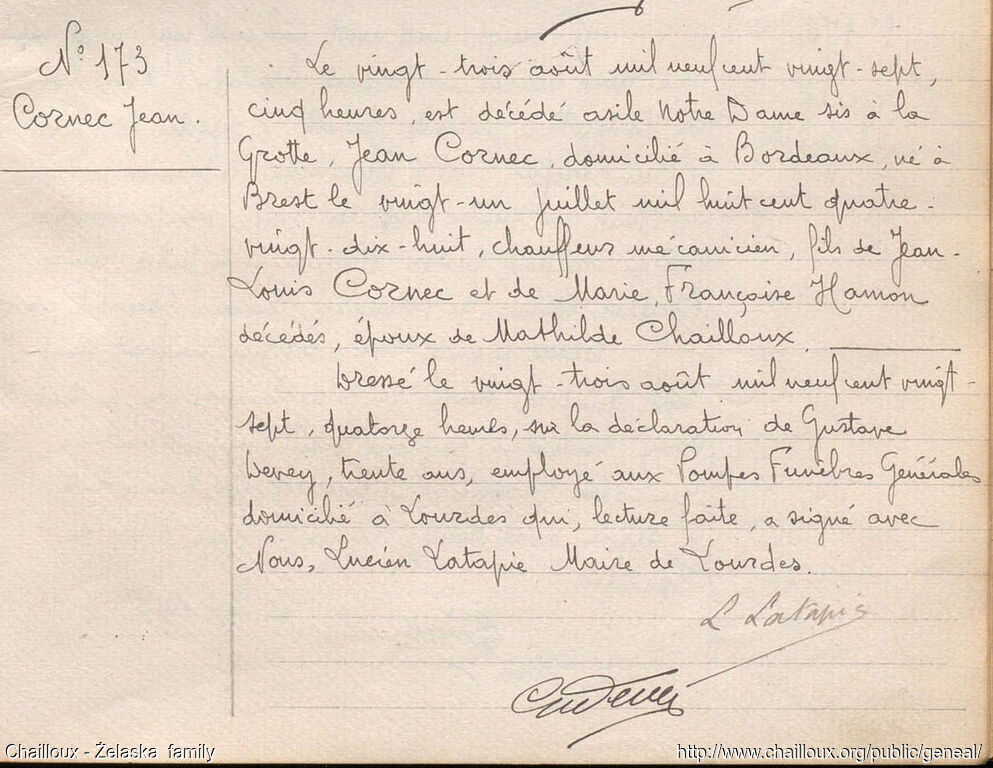 N° 173
Cornec Jean.
Le vingt-trois août mil neuf cent vingt-sept,
cinq heures, est décédé asile Notre Dame sis à la
Grotte, Jean Cornec, domicilié à Bordeaux, né à
Brest le vingt-un juillet mil huit cent quatre-
vingt-dix-huit, chauffeur mécanicien, fils de Jean-
Louis Cornec et de Marie, Françoise Hamon
décédés, époux de Mathilde Chailloux.
Dressé le vingt-trois août mil neuf cent vingt-
sept, quatorze heures, sur la déclaration de Gustave
Devey, trente ans, employé aux Pompes Funèbres Générales
domicilié à Lourdes qui, lecture faite, a signé avec
Nous, Lucien Latapie Maire de Lourdes.
L Latapie
Chailloux - Želaska family
http://www.chailloux.org/public/geneal/